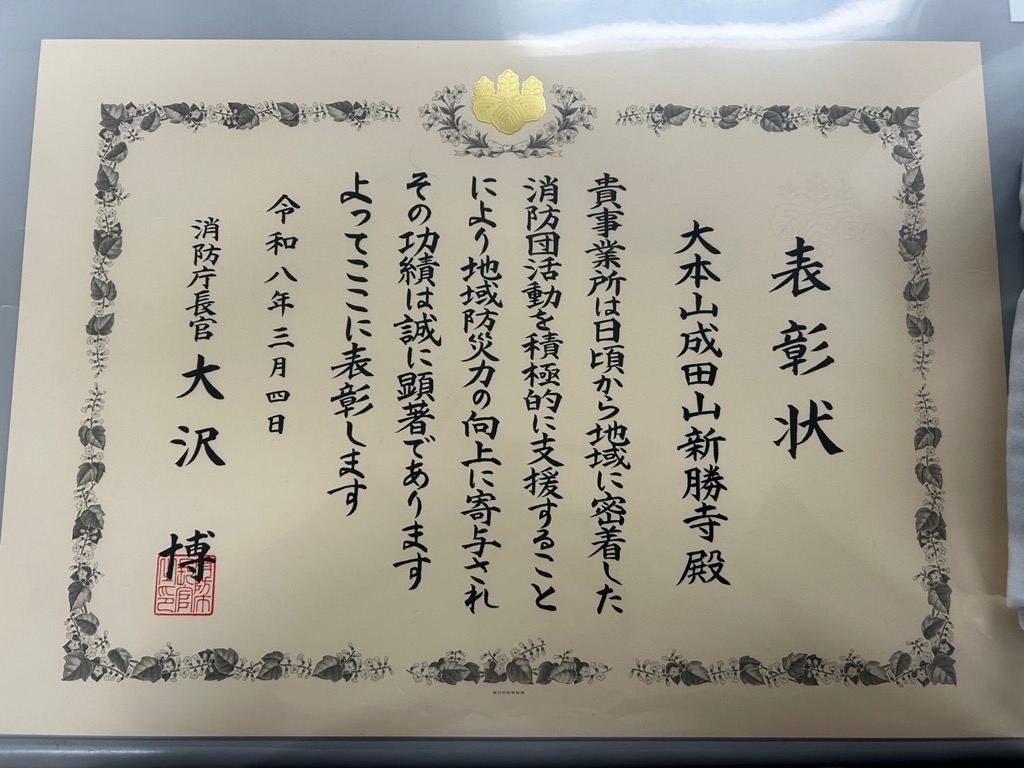 表彰状
大本山成田山新勝寺殿
貴事業所は日頃から地域に密着した
消防団活動を積極的に支援すること
により地域防災力の向上に寄与され
その功績は誠に顕著であります
よってここに表彰します
令和八年三月四日
消防庁長官 大沢 博